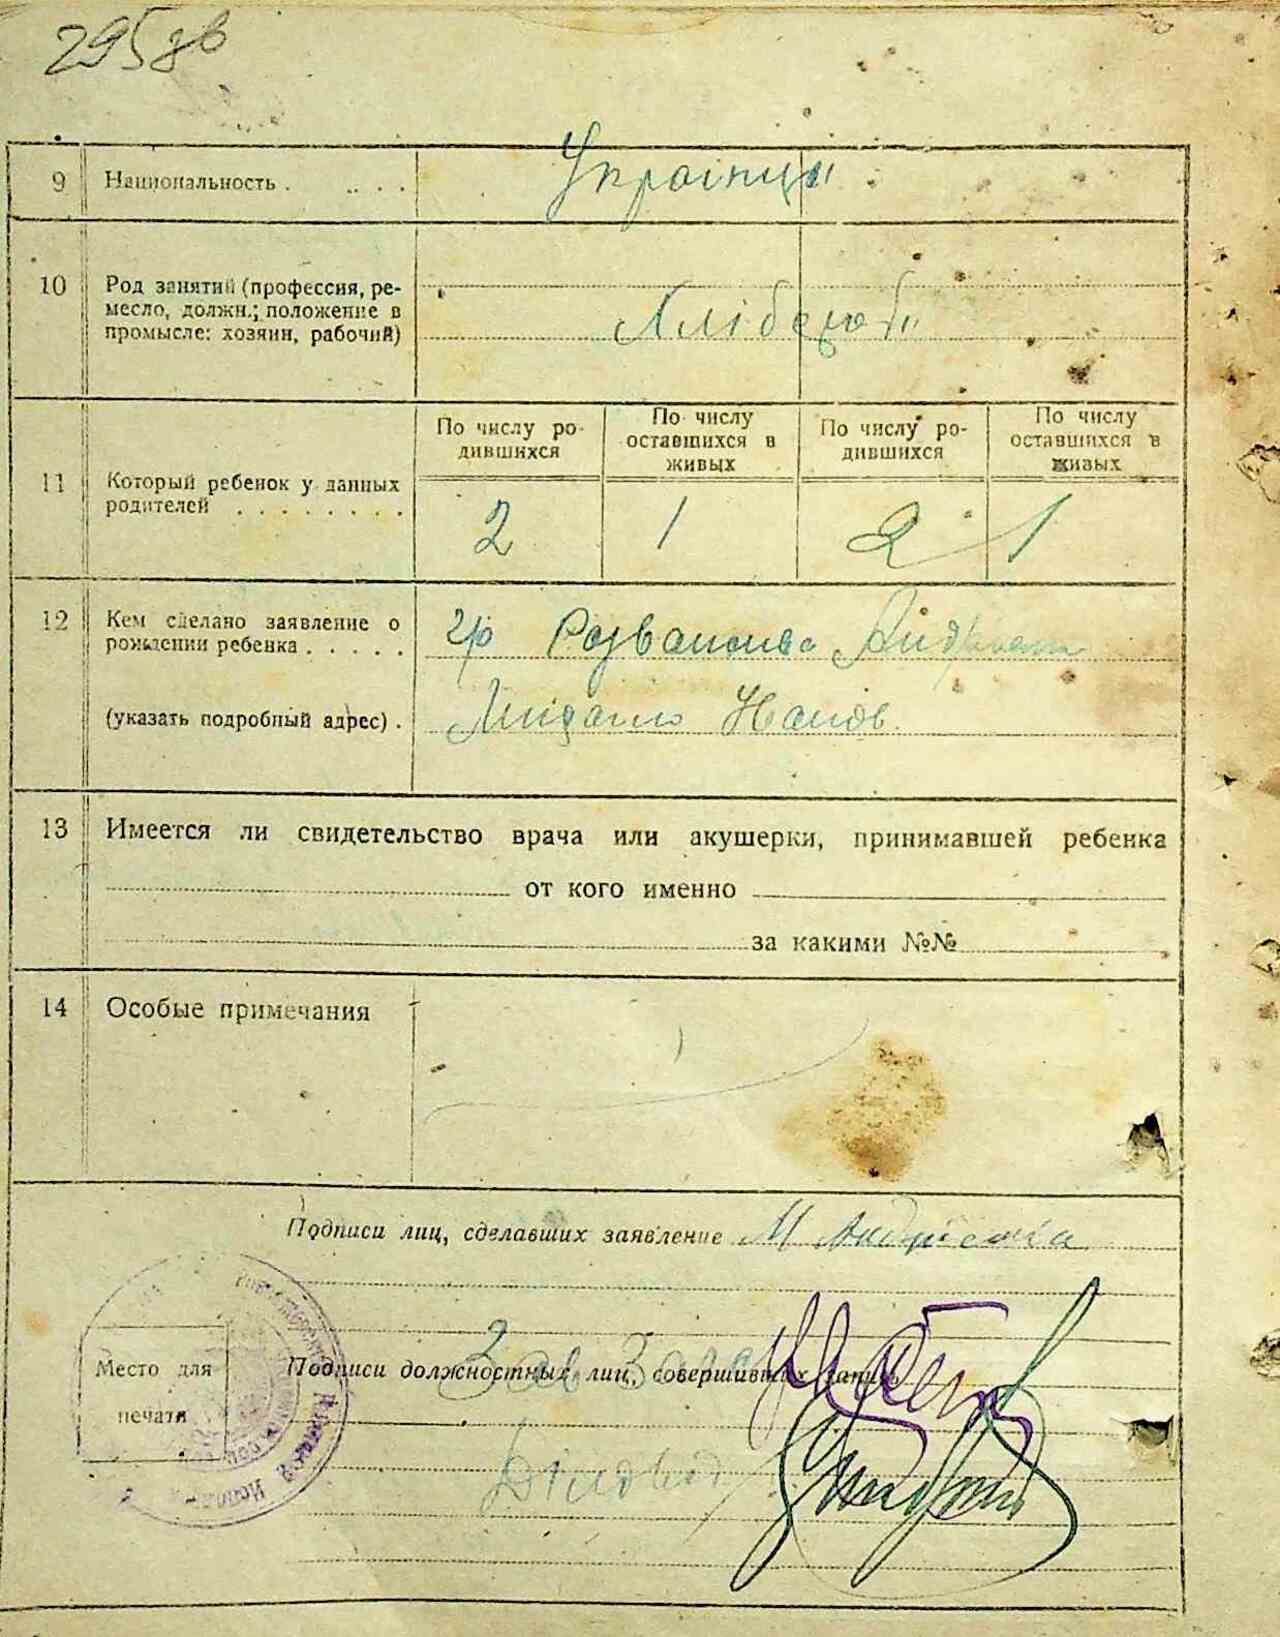 295 зв
9 Национальность . .. . .
Українці
10 Род занятий (профессия, ре-
месло, должн.; положение в
промысле: хозяин, рабочий)
Хлібороб
11 Который ребенок у данных
родителей . . . . . . . .
По числу ро-
дившихся
По числу
оставшихся в
живых
По числу ро-
дившихся
По числу
оставшихся в
живых
2 1 2 1
12 Кем сделано заявление о
рождении ребенка . . . . .
гр
(указать подробный адрес) .
13 Имеется ли свидетельство врача или акушерки, принимавшей ребенка
от кого именно
за какими №№
14 Особые примечания
Подписи лиц, сделавших заявление М
Место для
печати
Подписи должностных лиц, совершивших запись
Зав
Діловод